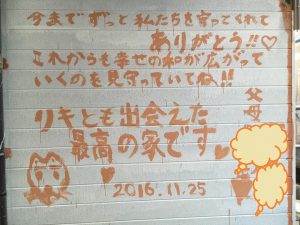 今までずっと私たちを守ってくれて
ありがとう!!♡
これからも幸せの和が広がって
いくのを見守っていてね!!
父
母
リキとも出会えた
最高の家です
2016.11.25